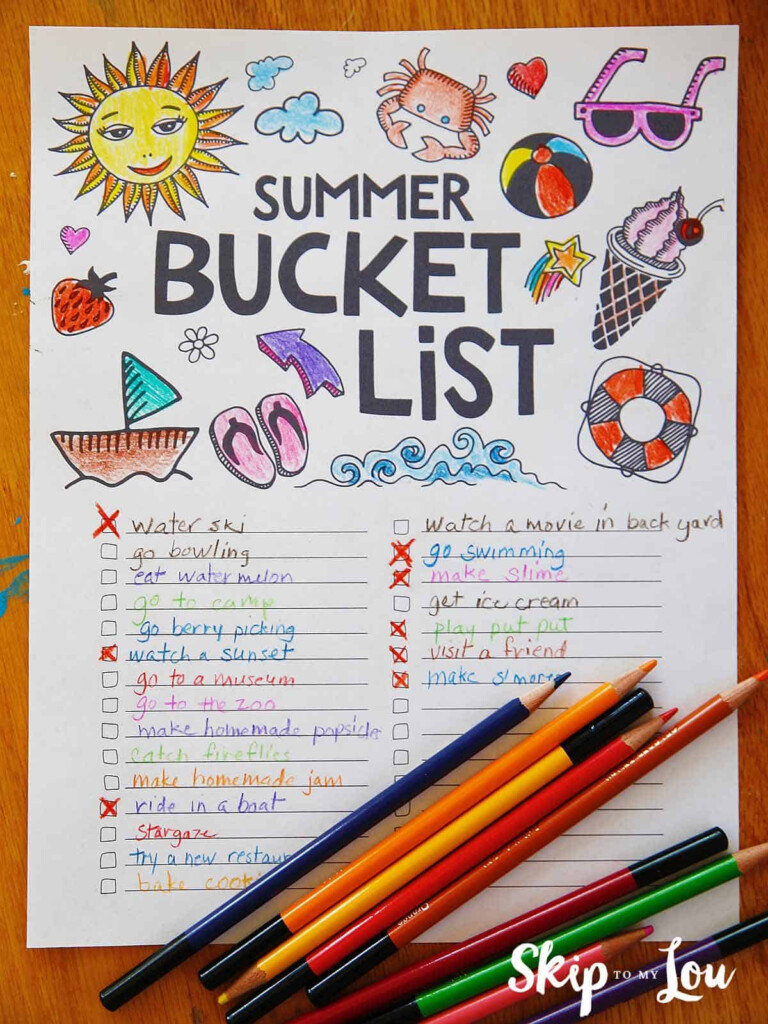 SUMMER
BUCKET
LIST
water ski
go bowling
eat watermelon
go to camp
go berry picking
watch a sunset
go to a museum
go to the zoo
make homemade popsicle
catch fireflies
make homemade jam
ride in a boat
stargaze
try a new restau
bake cooki
watch a movie in back yard
go swimming
make slime
get ice cream
play put put
visit a friend
make s'mores
SKIP TO MY LOU